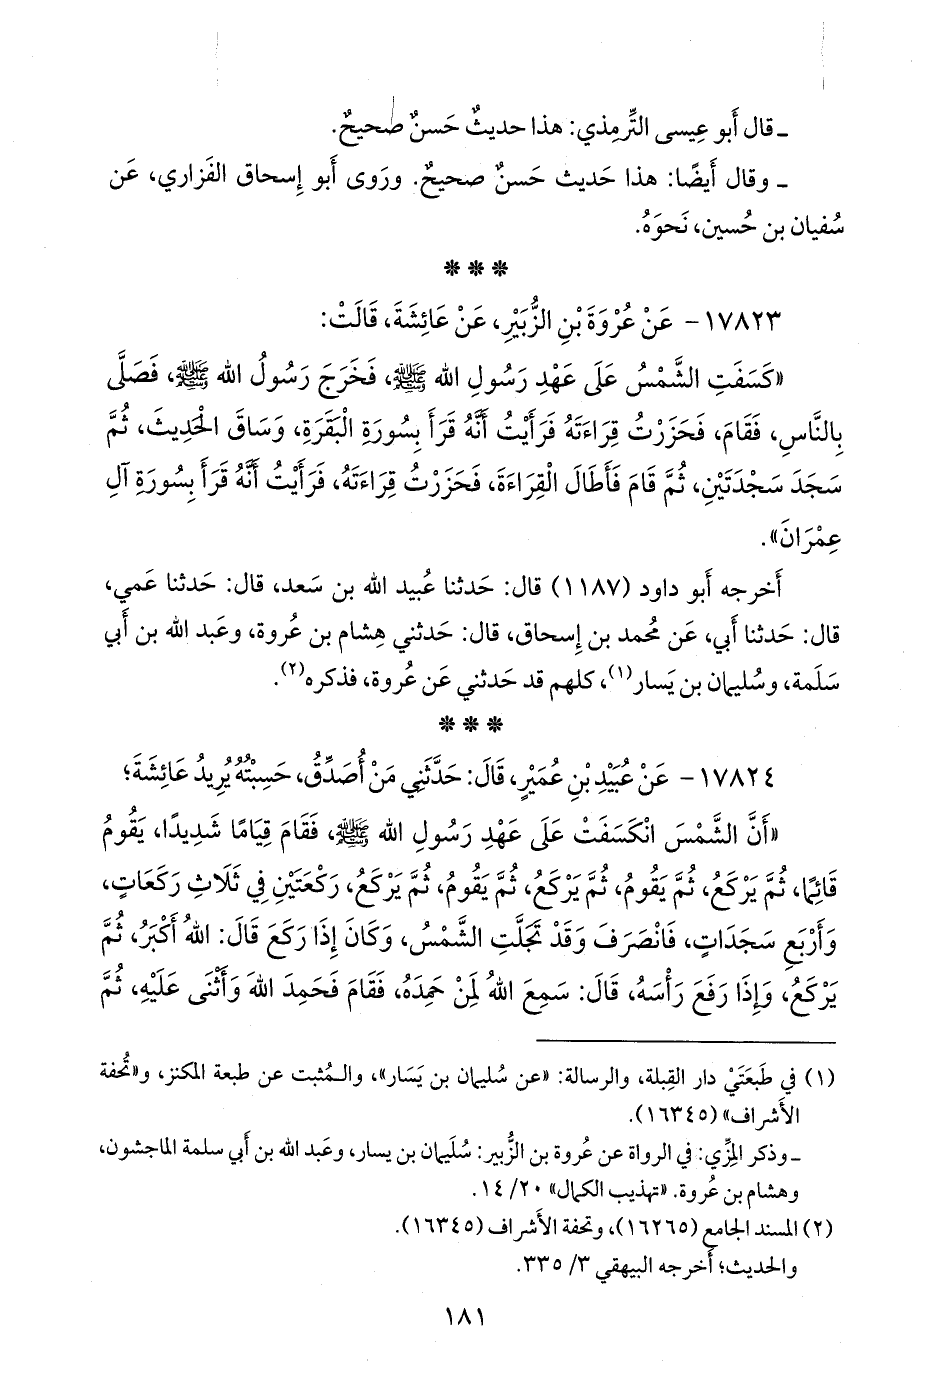 ـ قال أَبو عِيسى التِّرمِذي: هذا حديثٌ حَسنٌ صَحيحٌ.
ـ وقال أَيضًا: هذا حَديث حَسنٌ صحيحٌ. ورَوى أَبو إِسحاق الفَزاري، عَن
سُفيان بن حُسين، نَحوَهُ.
***
١٧٨٢٣- عَنْ عُرْوَةَ بْنِ الزُّبَيْرِ، عَنْ عَائِشَةَ، قَالَتْ:
«كَسَفَتِ الشَّمْسُ عَلَى عَهْدِ رَسُولِ الله ﷺ، فَخَرَجَ رَسُولُ الله ﷺ، فَصَلَّى
بِالنَّاسِ، فَقَامَ، فَحَزَرْتُ قِرَاءَتَهُ فَرَأَيْتُ أَنَّهُ قَرَأَ بِسُورَةِ الْبَقَرَةِ، وَسَاقَ الْحَدِيثَ، ثُمَّ
سَجَدَ سَجْدَتَيْنِ، ثُمَّ قَامَ فَأَطَالَ الْقِرَاءَةَ، فَحَزَرْتُ قِرَاءَتَهُ، فَرَأَيْتُ أَنَّهُ قَرَأَ بِسُورَةِ آلِ
عِمْرَانَ».
أَخرجه أَبو داود (١١٨٧) قال: حَدثنا عُبيد الله بن سَعد، قال: حَدثنا عَمي،
قال: حَدثنا أَبي، عَن مُحمد بن إِسحاق، قال: حَدثني هِشام بن عُروة، وعَبد الله بن أَبي
سَلَمة، وسُليمان بن يَسار(١)، كلهم قد حَدثني عَن عُروة، فذكره(٢).
***
١٧٨٢٤- عَنْ عُبَيْدِ بْنِ عُمَيْرٍ، قَالَ: حَدَّثَنِي مَنْ أُصَدِّقُ، حَسِبْتُهُ يُرِيدُ عَائِشَةَ؛
«أَنَّ الشَّمْسَ انْكَسَفَتْ عَلَى عَهْدِ رَسُولِ الله ﷺ، فَقَامَ قِيَامًا شَدِيدًا، يَقُومُ
قَائِمًا، ثُمَّ يَرْكَعُ، ثُمَّ يَقُومُ، ثُمَّ يَرْكَعُ، ثُمَّ يَقُومُ، ثُمَّ يَرْكَعُ، رَكْعَتَيْنِ فِي ثَلَاثِ رَكَعَاتٍ،
وَأَرْبَعِ سَجَدَاتٍ، فَانْصَرَفَ وَقَدْ تَجَلَّتِ الشَّمْسُ، وَكَانَ إِذَا رَكَعَ قَالَ: اللهُ أَكْبَرُ، ثُمَّ
يَرْكَعُ، وَإِذَا رَفَعَ رَأْسَهُ، قَالَ: سَمِعَ اللهُ لِمَنْ حَمِدَهُ، فَقَامَ فَحَمِدَ اللهَ وَأَثْنَى عَلَيْهِ، ثُمَّ
(١) في طَبعَتَيْ دار القِبلة، والرسالة: «عن سُليمان بن يَسَار»، والـمُثبت عن طبعة المكنز، و«تُحفة
الأَشراف» (١٦٣٤٥).
ـ وذكر المِزِّي: في الرواة عن عُروة بن الزُّبير: سُلَيمان بن يسار، وعَبد الله بن أَبي سلمة الماجشون،
وهشام بن عُروة. «تهذيب الكمال» ٢٠/ ١٤.
(٢) المسند الجامع (١٦٢٦٥)، وتحفة الأَشراف (١٦٣٤٥).
والحديث؛ أَخرجه البيهقي ٣/ ٣٣٥.
١٨١